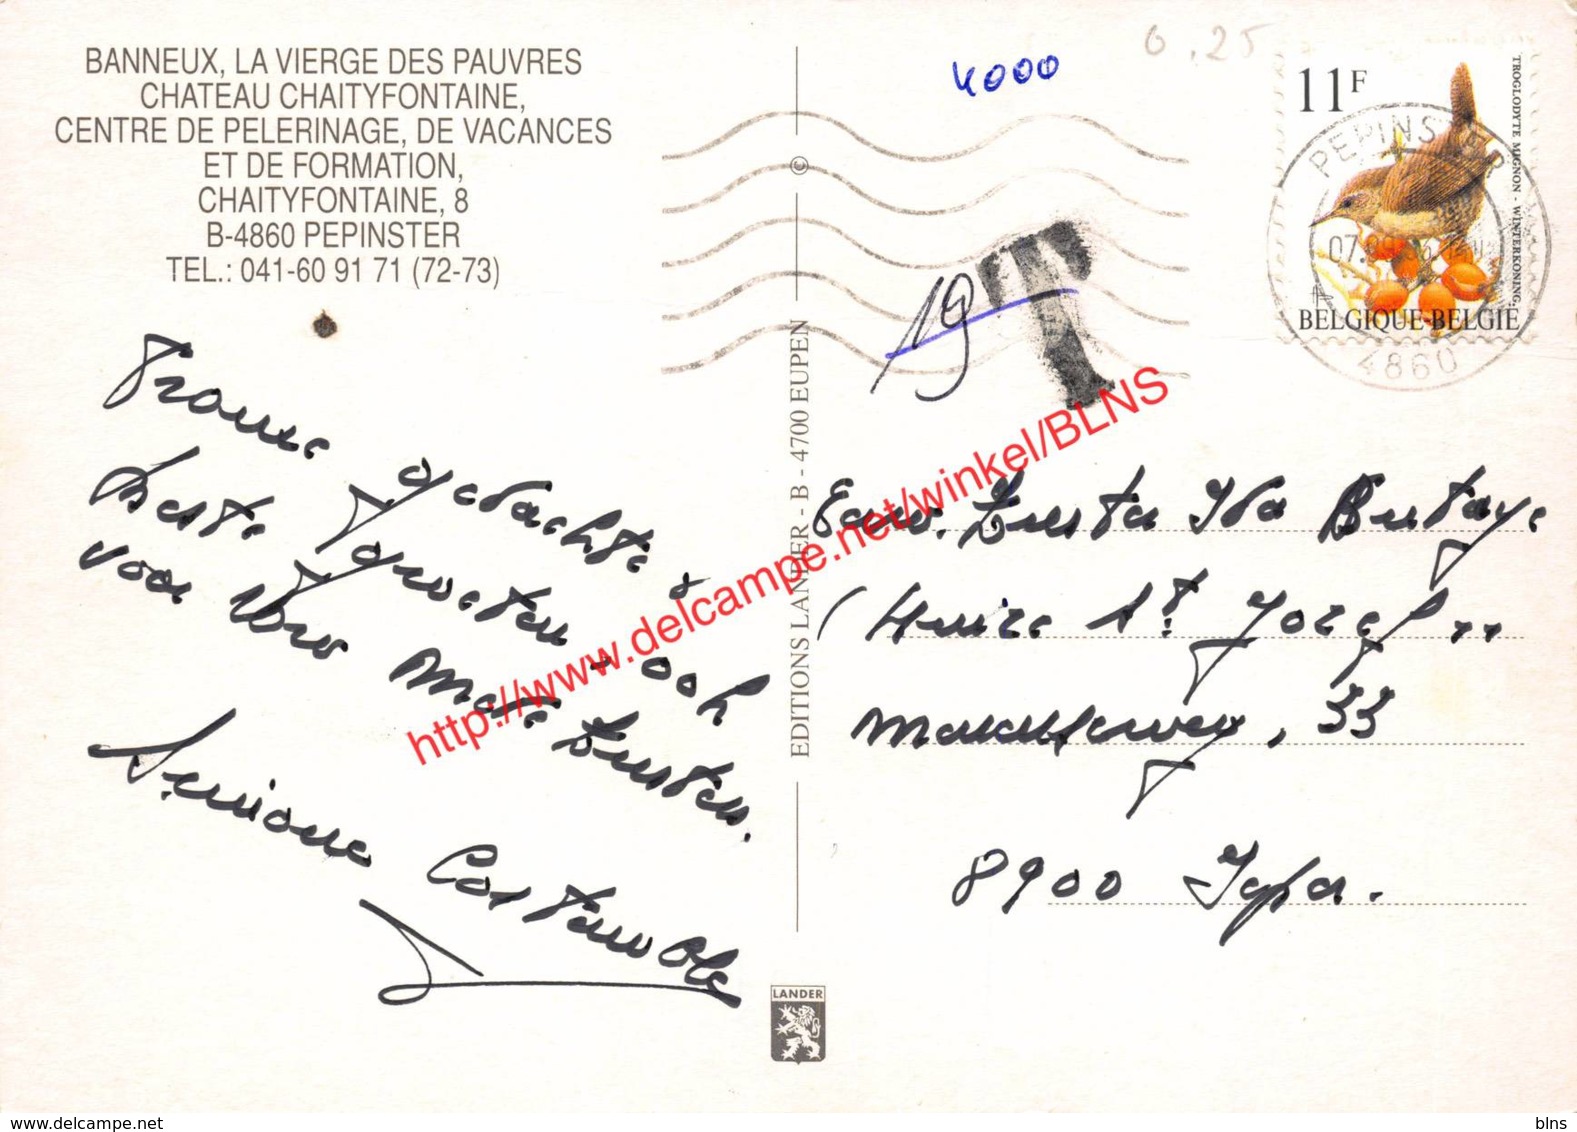 BANNEUX, LA VIERGE DES PAUVRES
CHATEAU CHAITYFONTAINE,
CENTRE DE PELERINAGE, DE VACANCES
ET DE FORMATION,
CHAITYFONTAINE, 8
B-4860 PEPINSTER
TEL.: 041-60 91 71 (72-73)
Vrome gedachte &
beste groeten - ook
voor Uw Mede Zusters.
Simone
©
EDITIONS LANDER - B - 4700 EUPEN
LANDER
4000
0.25
19
T
11F
TROGLODYTE MIGNON - WINTERKONING
BELGIQUE-BELGIE
PEPINSTER
4860
Eerw. Zuster Ida Butaye
(Huize St Jozef"
33
8900 Ieper.
http://www.delcampe.net/winkel/BLNS
www.delcampe.net
blns